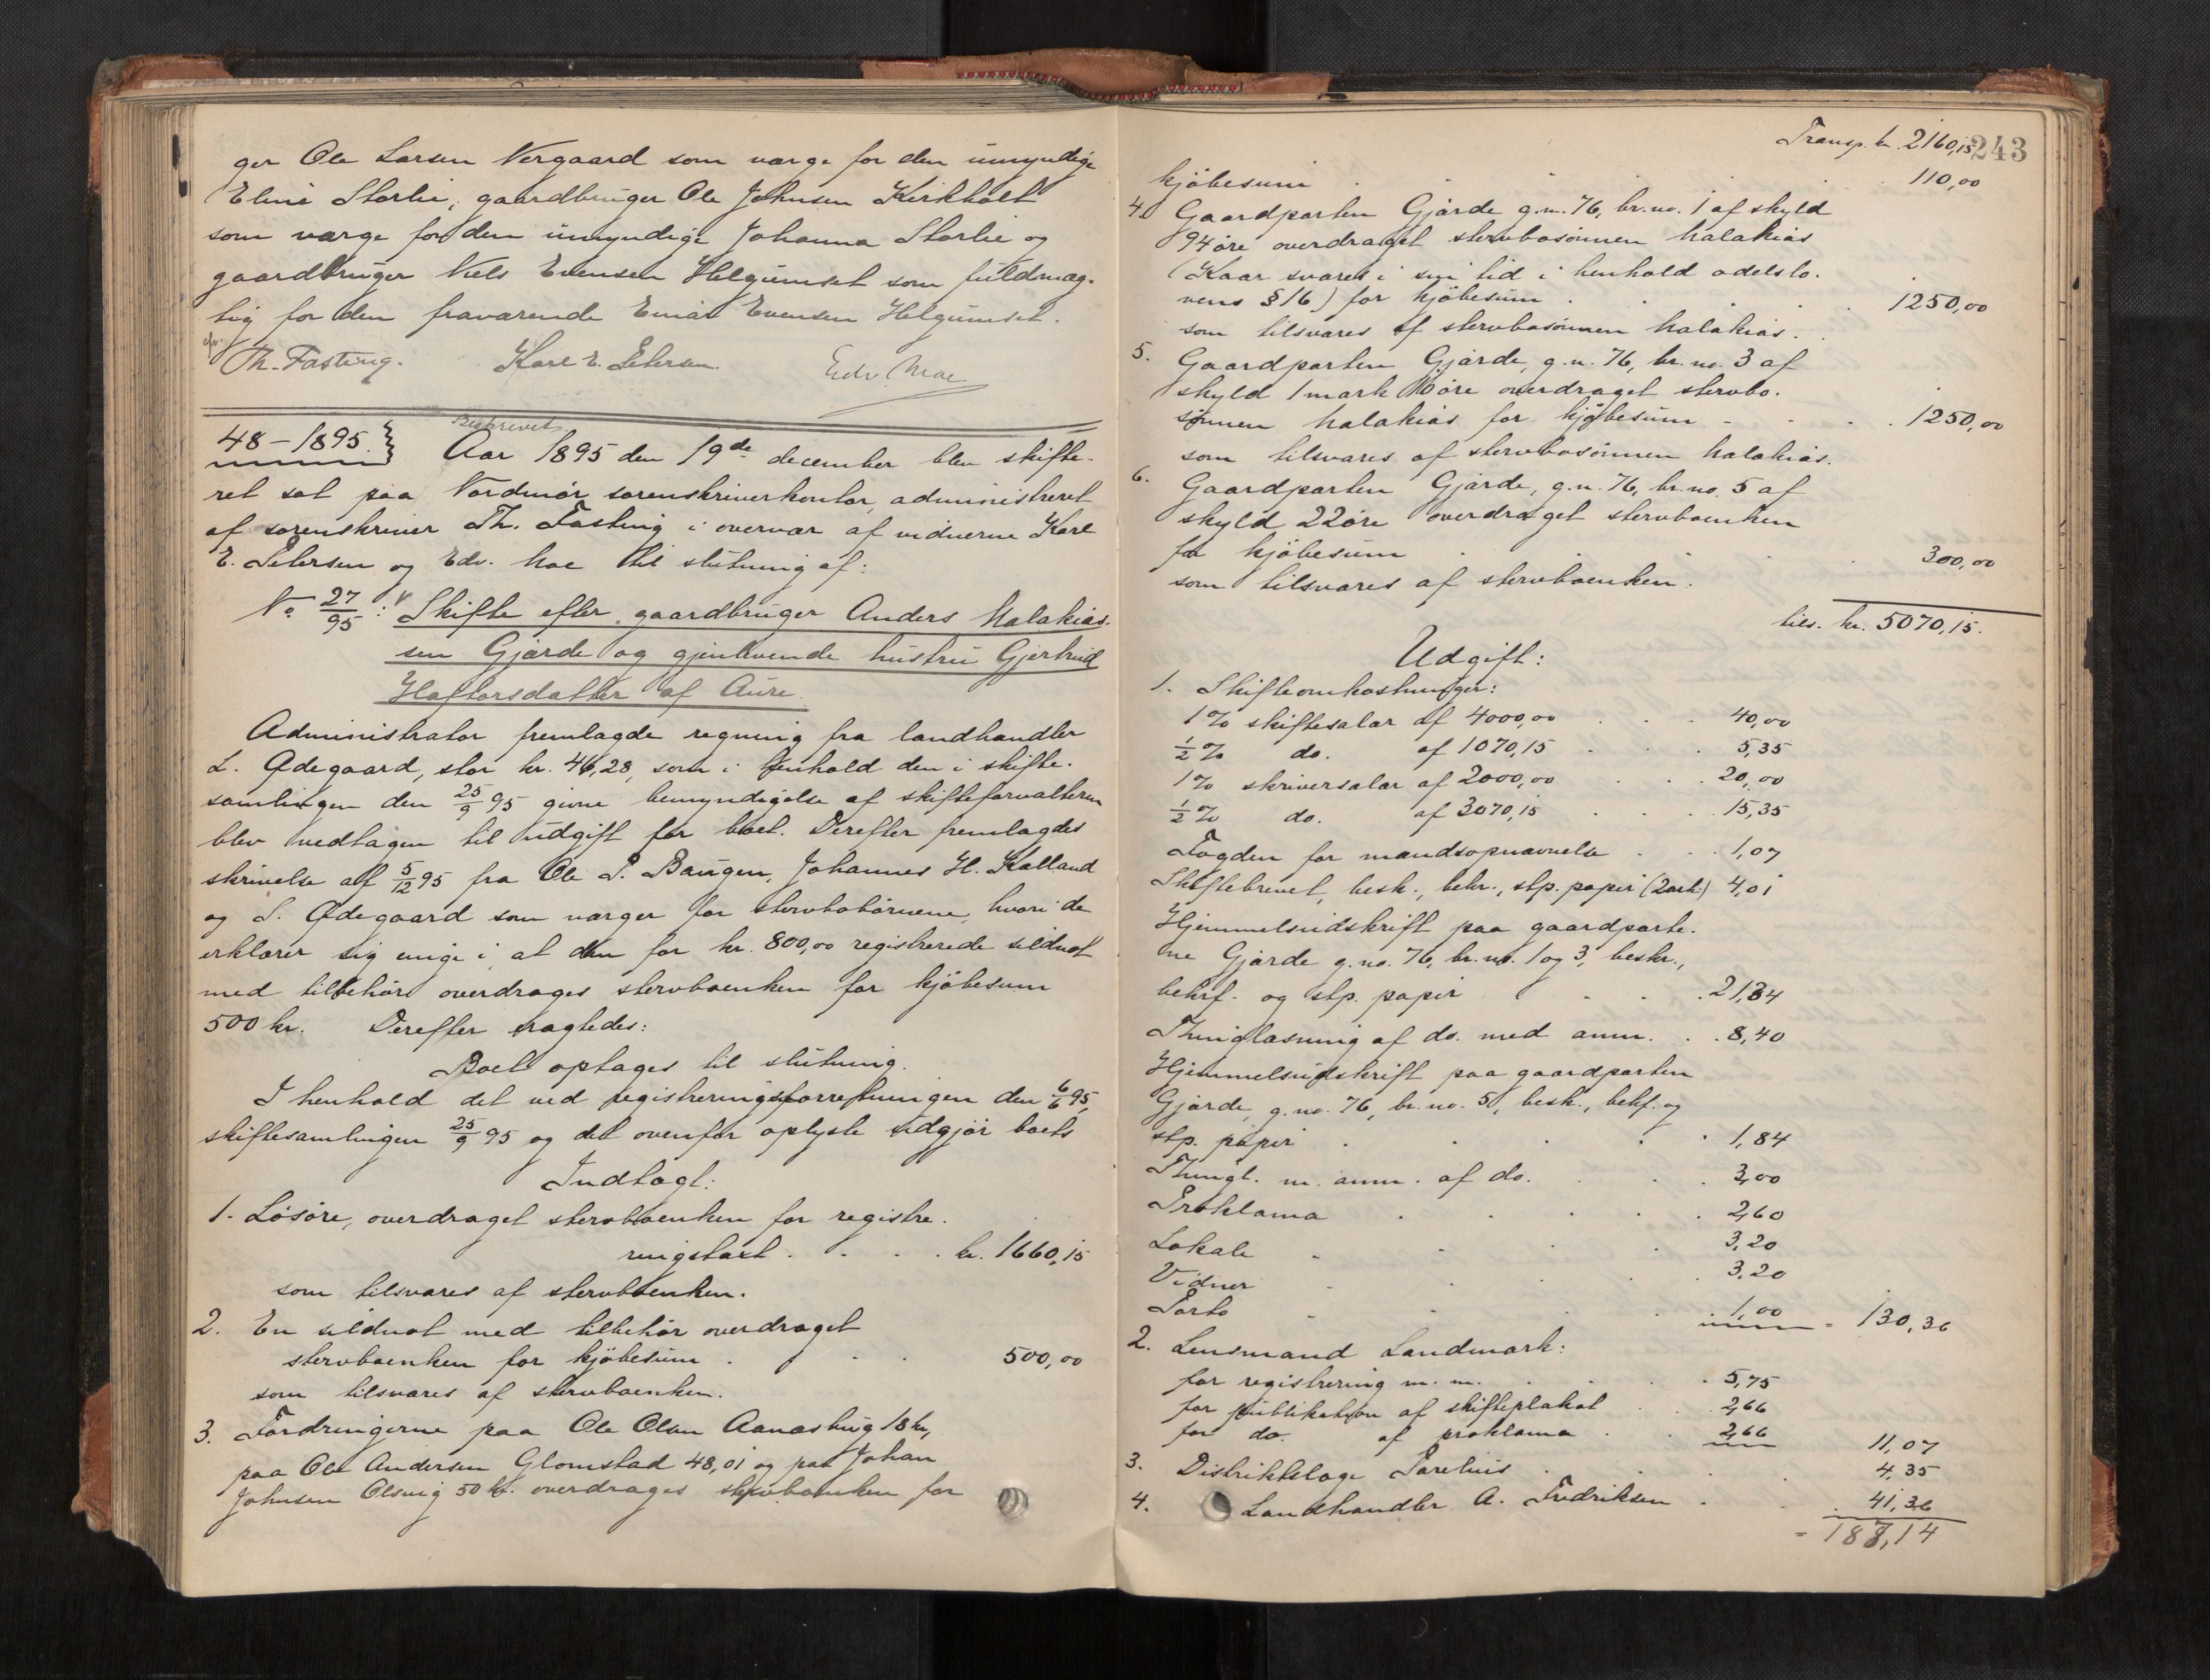 ger Ole Larsen Vergaard som værge for den umyndige
Eline Storlie, gaardbruger Ole Johnsen Kirkholt
som værge for den umyndige Johanna Storlie og
gaardbruger Nels Evensen Helgumset som fuldmæg-
tig for den fraværende Einar Evensen Helgumset.
Th. Fasting. Karl E. Petersen Edv. Moe
48-1895. Beskrevet
Aar 1895 den 19de december blev skifte-
ret sat paa Nordmør sorenskriverkontor, administreret
af sorenskriver Th. Fasting i overvær af vidnerne Karl
E. Petersen og Edv. Moe til slutning af:
No 27/95: Skifte efter gaardbruger Anders Malakias-
sen Gjærde og gjenlevende hustru Gjertrud
Haftorsdatter af Aure.
Administrator fremlagde regning fra landhandler
L. Ødegaard, stor kr. 46,28, som i henhold den i skifte-
samlingen den 25/9 95 givne bemyndigelse af skifteforvalteren
blev vedtagen til udgift for boet. Derefter fremlagdes
skrivelse af 5/12 95 fra Ole P. Baugen, Johannes H. Kalland
og S. Ødegaard som værger for stervbobørnene, hvori de
erklærer sig enige i, at den for kr. 800,00 registrerede sildnot
med tilbehør overdrages stervboenken for kjøbesum
500 kr. Derefter eragtedes:
Boet optages til slutning.
I henhold det ved registreringsforretningen den 6/6 95,
skiftesamlingen 25/9 95 og det ovenfor oplyste udgjør boets
Indtægt:
1. Løsøre, overdraget stervboenken for registre-
ringstaxt . . . . kr. 1660,15
som tilsvares af stervboenken.
2. En sildnot med tilbehør overdraget
stervboenken for kjøbesum . . . 500,00
som tilsvares af stervboenken.
3. Fordringerne paa Ole Olsen Aanæshug 18 kr,
paa Ole Andersen Glomstad 48,01 og paa Johan
Johnsen Olsvig 50 kr. overdrages stervboenken for
Transp. kr. 2160,15 243
kjøbesum . . . . . . 110,00
4. Gaardparten Gjærde g.n. 76, br.no. 1 af skyld
94 øre overdraget stervbosønnen Malakias
(Kaar svares i sin tid i henhold odelslo-
vens § 16) for kjøbesum . . . 1250,00
som tilsvares af stervbosønnen Malakias.
5. Gaardparten Gjærde, g.n. 76, br.no. 3 af
skyld 1 mark 10 øre overdraget stervbo-
sønnen Malakias for kjøbesum . . . 1250,00
som tilsvares af stervbosønnen Malakias.
6. Gaardparten Gjærde, g.n. 76, br.no. 5 af
skyld 22 øre overdraget stervboenken
for kjøbesum . . . 300,00
som tilsvares af stervboenken.
tils. kr. 5070,15.
Udgift:
1. Skifteomkostninger:
1% skiftesalær af 4000,00 . . . 40,00
½% do. af 1070,15 . . . 5,35
1% skriversalær af 2000,00 . . . 20,00
½% do. af 3070,15 . . . 15,35
Fogden for mandsopnævnelse . . 1,07
Skiftebrevet, besk., bekr., stp. papir (2 ark) 4,01
Hjemmelsudskrift paa gaardparte-
ne Gjærde g.no. 76, br.no. 1 og 3, beskr.,
bekrf. og stp. papir . . . 21,34
Thinglæsning af do. med anm. . . 8,40
Hjemmelsudskrift paa gaardparten
Gjærde, g.no. 76, br.no. 5, besk., bekf. og
stp. papir . . . . 1,84
Thingl. m. anm. af do. . . 3,00
Proklama . . . . 2,60
Lokale . . . . 3,20
Vidner . . . . 3,20
Porto . . . . 1,00 = 130,36
2. Lensmand Landmark:
for registrering m. m. . . . 5,75
for publikation af skifteplakat . . 2,66
for do. af proklama . . 2,66 11,07
3. Distriktslæge Parelius . . . 4,35
4. Landhandler A. Fredriksen . . . 41,36
= 187,14